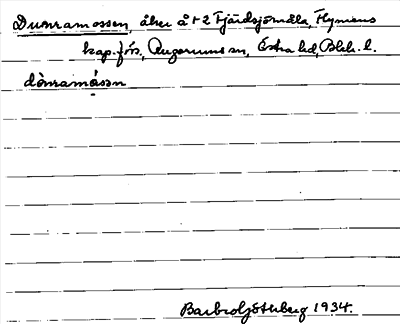 Dunramossen, åker å t 2 Fjärdsjömåla, Flymens
kap.förs., Augerums sn, Östra hd, Blek. l.
dònramåssn
Barbro Götherberg 1934.